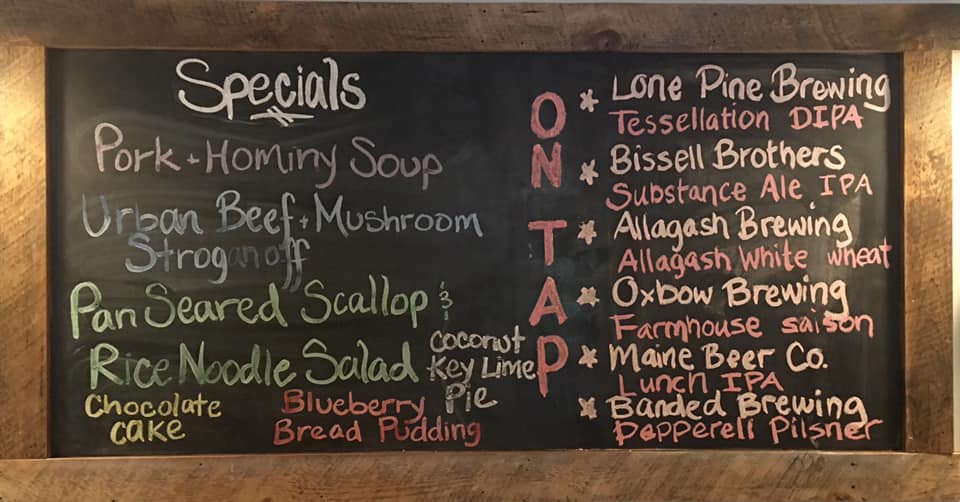 Specials
Pork + Hominy Soup
Urban Beef + Mushroom
Stroganoff
Pan Seared Scallop &
Rice Noodle Salad
Coconut
Key Lime
Pie
Chocolate
Cake
Blueberry
Bread Pudding
ON TAP
* Lone Pine Brewing
Tessellation DIPA
* Bissell Brothers
Substance Ale IPA
* Allagash Brewing
Allagash White wheat
* Oxbow Brewing
Farmhouse saison
* Maine Beer Co.
Lunch IPA
* Banded Brewing
Pepperell Pilsner